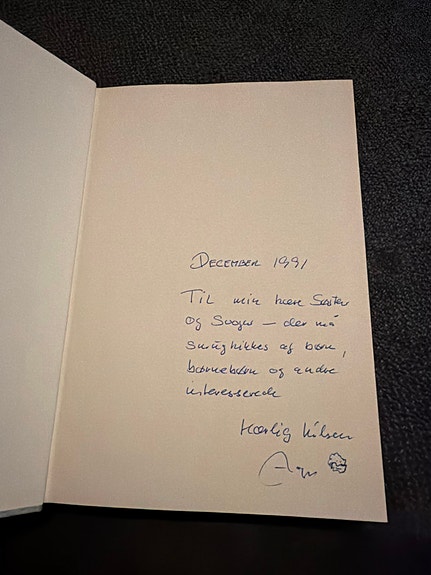 DECEMBER 1991
Til min kære Søster
og Svoger – der må
smugkikkes af børn,
børnebørn og andre
interesserede
Kærlig hilsen